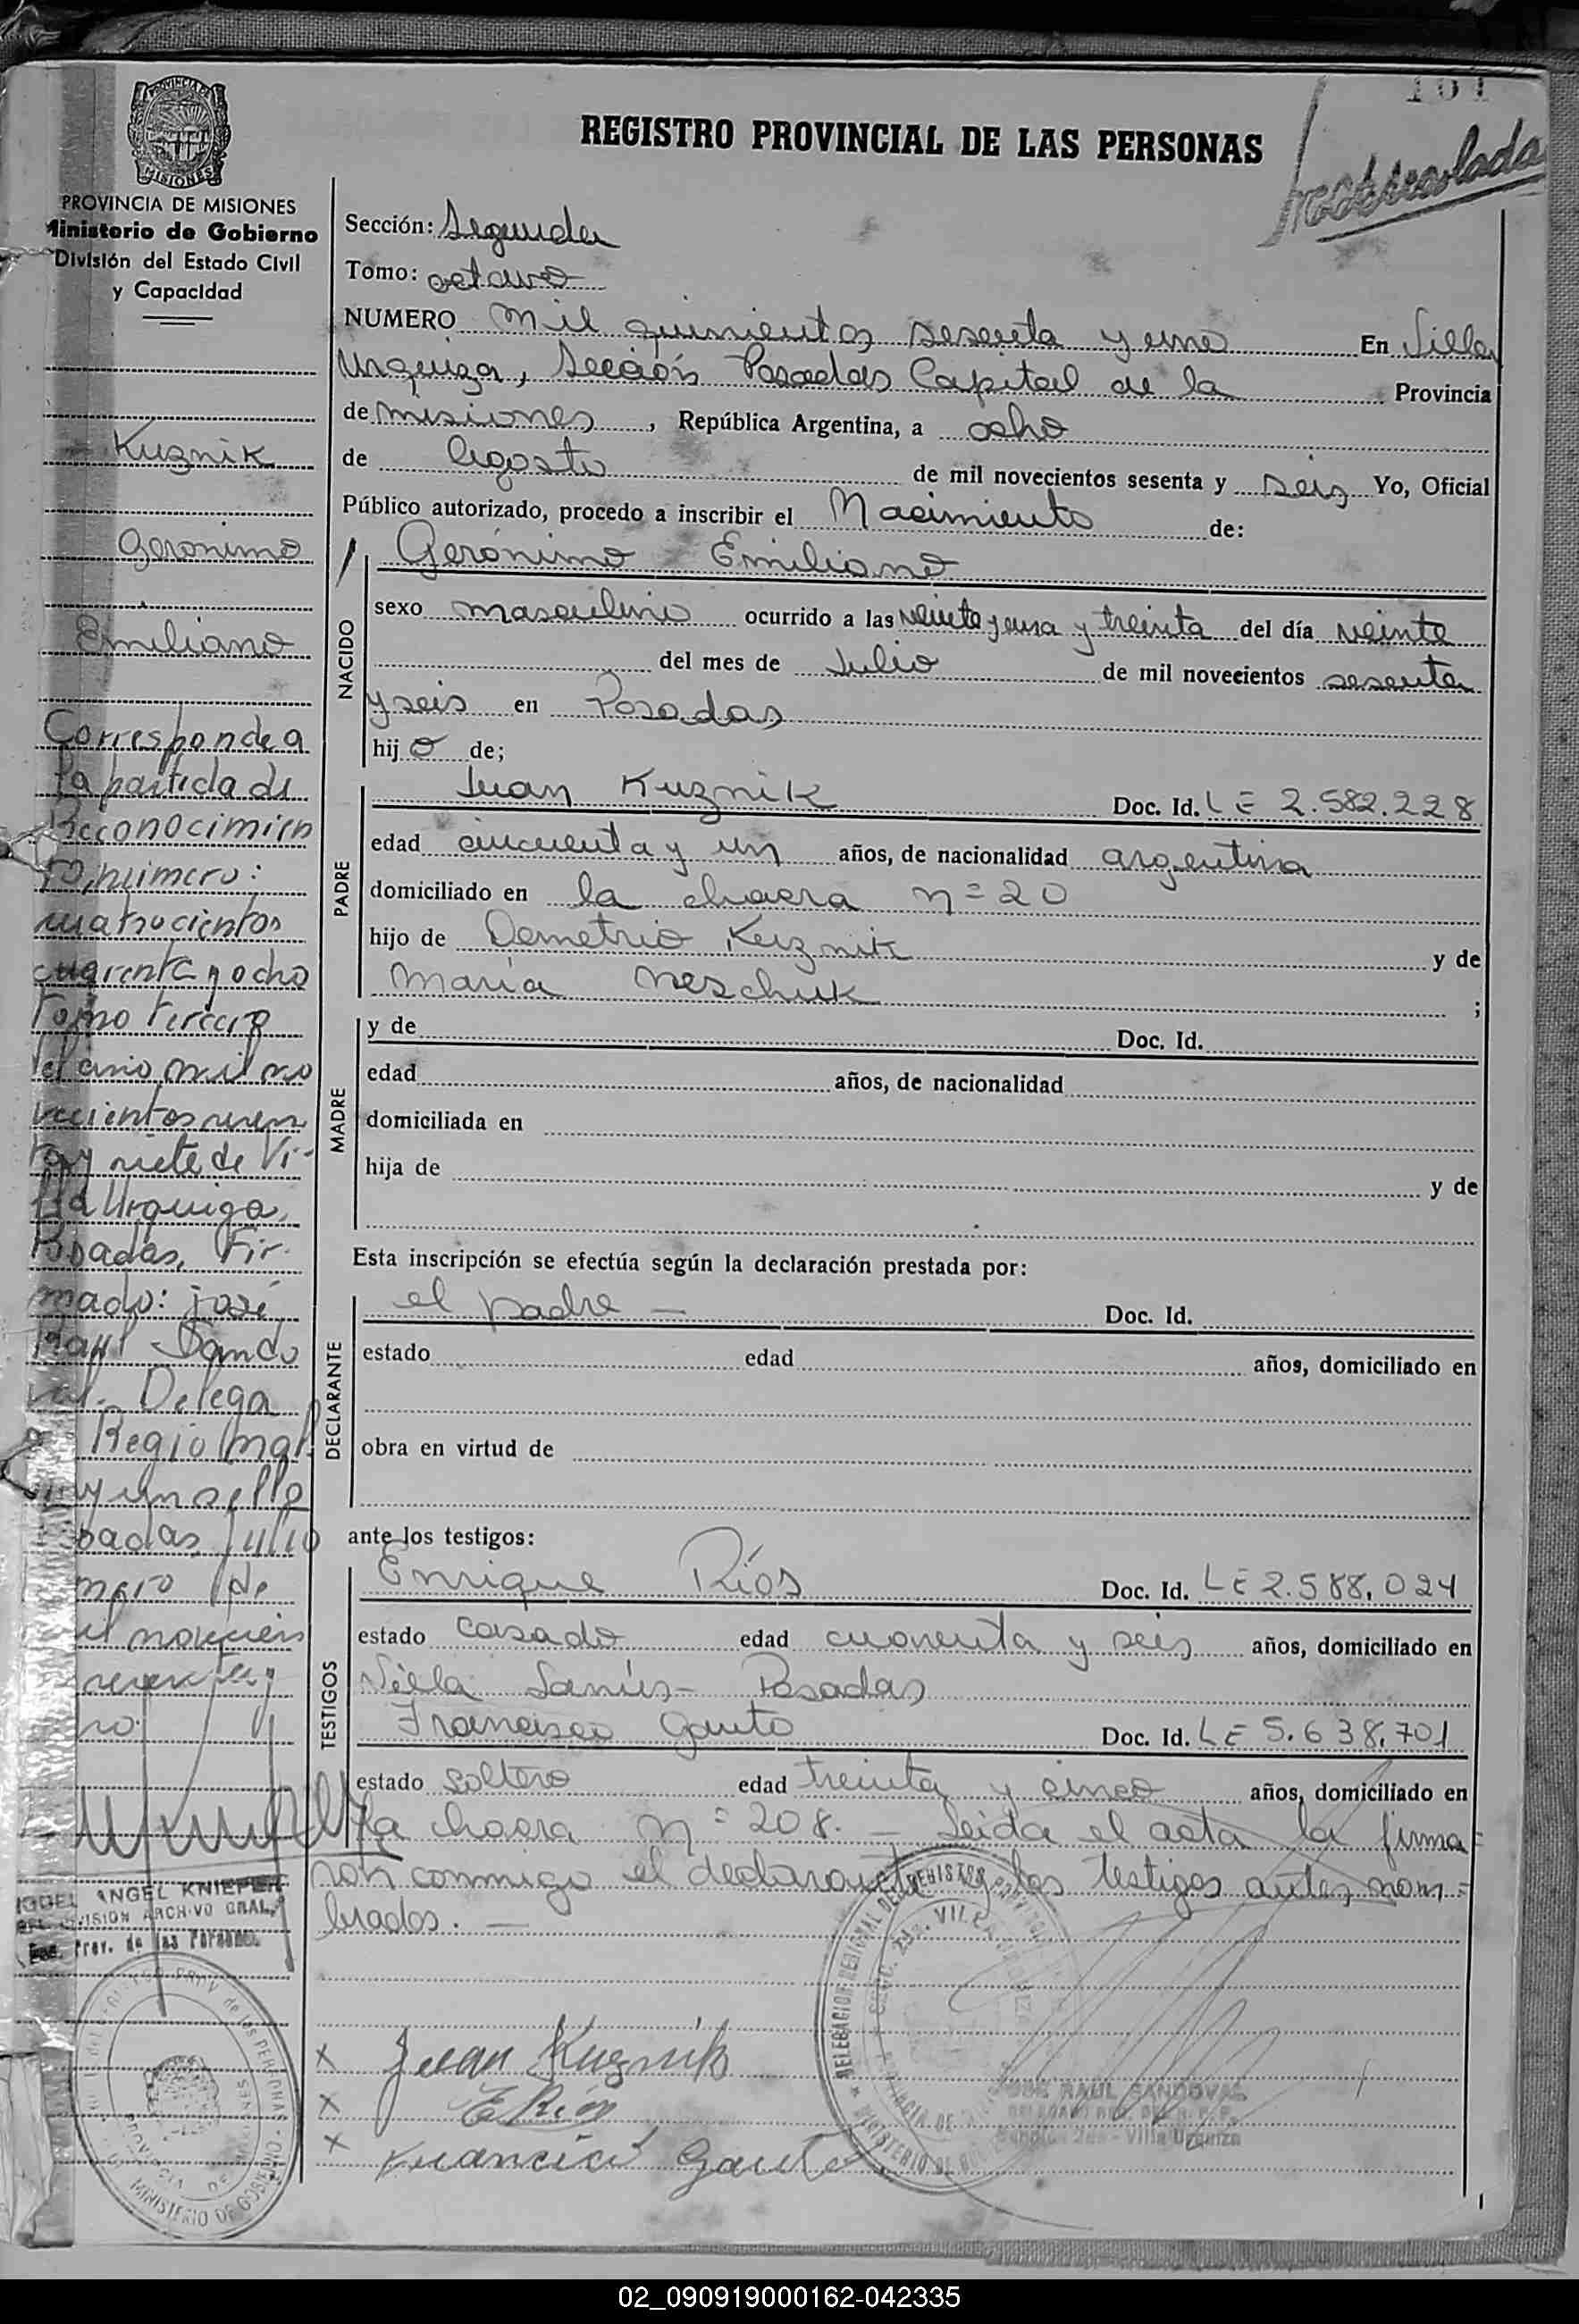 161
REGISTRO PROVINCIAL DE LAS PERSONAS
PROVINCIA DE MISIONES
Ministerio de Gobierno
División del Estado Civil
y Capacidad
Kuznik
Geronimo
Emiliano
Corresponde a
la partida de
Reconocimien
to, número:
cuatrocientos
cuarenta y ocho
tomo tercero
del año mil no
vecientos sesen
ta y siete de Vi-
lla Urquiza,
Posadas, Fir-
mado: José
Raul Sando
val. Delega
Regional
y un sello
sadas, Julio
mero de
il novecien
Sección: Segunda
Tomo: octavo
NUMERO mil quinientos sesenta y uno En Villa
Urquiza, Sección Posadas Capital de la Provincia
de misiones, República Argentina, a ocho
de Agosto de mil novecientos sesenta y seis Yo, Oficial
Público autorizado, procedo a inscribir el Nacimiento de:
NACIDO
Gerónimo Emiliano
sexo masculino ocurrido a las veinte y una y treinta del día veinte
del mes de Julio de mil novecientos sesenta
y seis en Posadas
hijo de;
PADRE
Juan Kuznik Doc. Id. LE 2.582.228
edad cincuenta y un años, de nacionalidad argentina
domiciliado en la chacra n=20
hijo de Demetrio Kuznik y de
María Neschuk ;
MADRE
y de Doc. Id.
edad años, de nacionalidad
domiciliada en
hija de y de
Esta inscripción se efectúa según la declaración prestada por:
DECLARANTE
el padre — Doc. Id.
estado edad años, domiciliado en
obra en virtud de
ante los testigos:
TESTIGOS
Enrique Ríos Doc. Id. LE 2.588.024
estado casado edad cuarenta y seis años, domiciliado en
Villa Lanús - Posadas
Francisco Gauto Doc. Id. LE 5.638.701
estado soltero edad treinta y cinco años, domiciliado en
la chacra n=208. — Leida el acta la firma=
ron conmigo el declarante y los testigos antes nom=
brados. —
ANGEL KNIEPER
DIVISION ARCHIVO GRAL.
Prov. de las Personas
x Juan Kuznik
x E Ríos
x Francisco Gauto
JOSE RAUL SANDOVAL
Sección 2da - Villa Urquiza
02_090919000162-042335